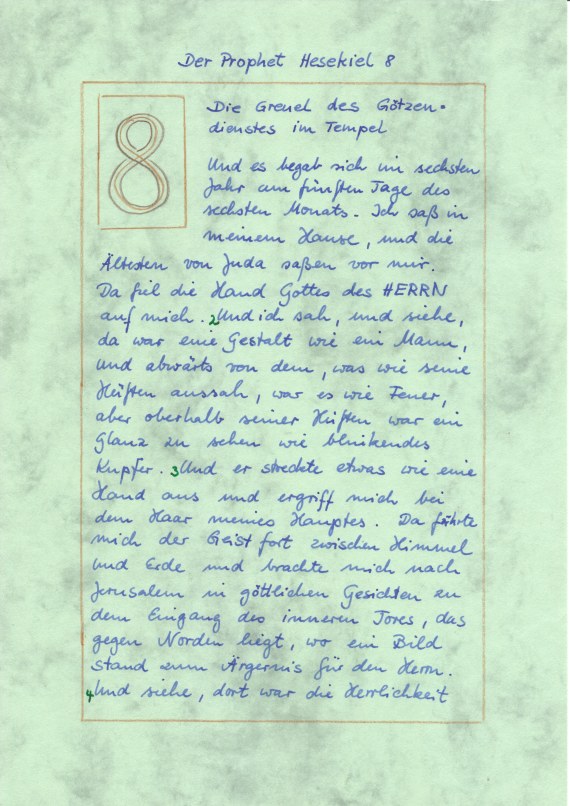 Der Prophet Hesekiel 8
8
Die Greuel des Götzen-
dienstes im Tempel
Und es begab sich im sechsten
Jahr am fünften Tage des
sechsten Monats. Ich saß in
meinem Hause, und die
Ältesten von Juda saßen vor mir.
Da fiel die Hand Gottes des HERRN
auf mich. 2 Und ich sah, und siehe,
da war eine Gestalt wie ein Mann,
und abwärts von dem, was wie seine
Hüften aussah, war es wie Feuer,
aber oberhalb seiner Hüften war ein
Glanz zu sehen wie blinkendes
Kupfer. 3 Und er streckte etwas wie eine
Hand aus und ergriff mich bei
dem Haar meines Hauptes. Da führte
mich der Geist fort zwischen Himmel
und Erde und brachte mich nach
Jerusalem in göttlichen Gesichten zu
dem Eingang des inneren Tores, das
gegen Norden liegt, wo ein Bild
stand zum Ärgernis für den Herrn.
4 Und siehe, dort war die Herrlichkeit